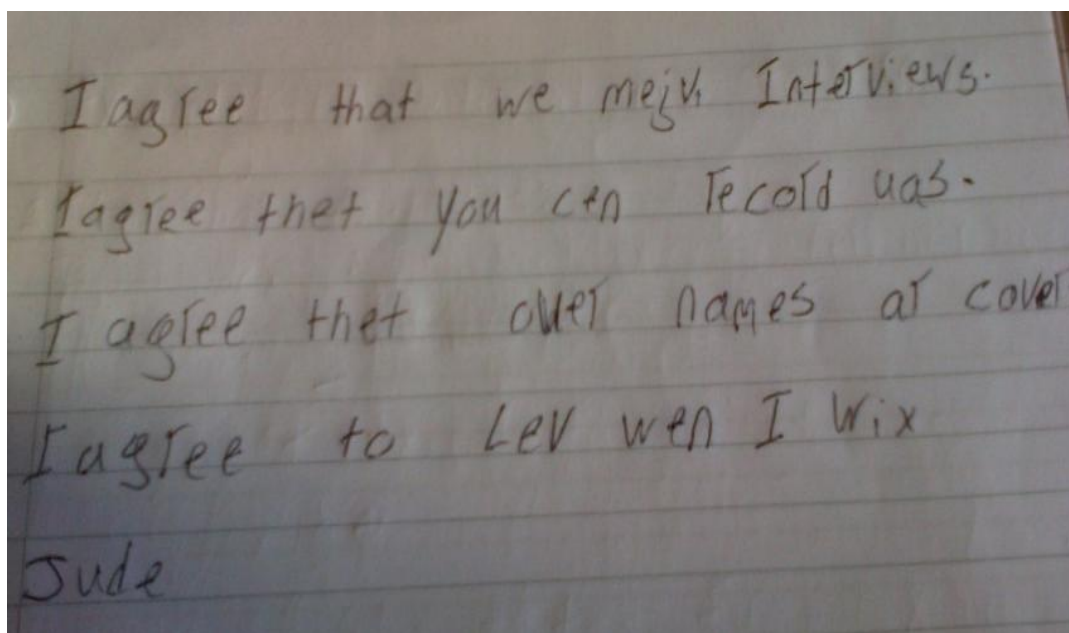 I agree that we mejv Interviews.
I agree thet you cen record uas.
I agree thet ouer names ar cover
I agree to Lev wen I Wix
Jude